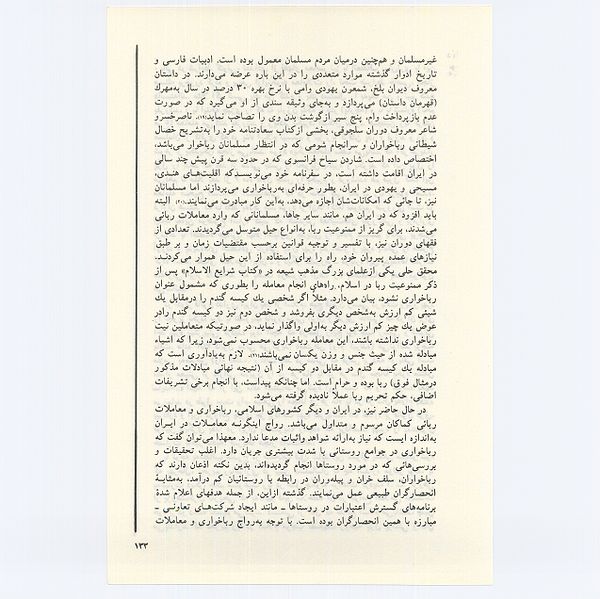 غیرمسلمان و هم‌چنین درمیان مردم مسلمان معمول بوده است. ادبیات فارسی و
تاریخ ادوار گذشته موارد متعددی را در این باره عرضه می‌دارند. در داستان
معروف دیوان بلخ، شمعون یهودی وامی با نرخ بهره ۳۰ درصد در سال به‌مهرك
(قهرمان داستان) می‌پردازد و به‌جای وثیقه سندی از او می‌گیرد که در صورت
عدم بازپرداخت وام، پنج سیر ازگوشت بدن وی را تصاحب نماید. ناصرخسرو
شاعر معروف دوران سلجوقی، بخشی ازکتاب سعادتنامه خود را به‌تشریح خصال
شیطانی رباخواران و سرانجام شومی که در انتظار مسلمانان رباخوار می‌باشد،
اختصاص داده است. شاردن سیاح فرانسوی که در حدود سه قرن پیش چند سالی
در ایران اقامت داشته است، در سفرنامه خود می‌نویسدکه اقلیت‌های هندی،
مسیحی و یهودی در ایران، بطور حرفه‌ای به‌رباخواری می‌پردازند اما مسلمانان
نیز، تا جائی که امکانات‌شان اجازه می‌دهد، به‌این کار مبادرت می‌نمایند. البته
باید افزود که در ایران هم، مانند سایر جاها، مسلمانانی که وارد معاملات ربائی
می‌شدند، برای گریز از ممنوعیت ربا، به‌انواع حیل متوسل می‌گردیدند. تعدادی از
فقهای دوران نیز، با تفسیر و توجیه قوانین برحسب مقتضیات زمان و بر طبق
نیازهای عمده پیروان خود، راه را برای استفاده از این حیل هموار می‌کردند.
محقق حلی یکی ازعلمای بزرگ مذهب شیعه در «کتاب شرایع الاسلام» پس از
ذکر ممنوعیت ربا در اسلام، راه‌های انجام معامله را بطوری که مشمول عنوان
رباخواری نشود، بیان می‌دارد. مثلاً اگر شخصی یك کیسه گندم را درمقابل یك
شیئی کم ارزش به‌شخص دیگری بفروشد و شخص دوم نیز دو کیسه گندم رادر
عوض یك چیز کم ارزش دیگر به‌اولی واگذار نماید، در صورتیکه متعاملین نیت
رباخواری نداشته باشند، این معامله رباخواری محسوب نمی‌شود، زیرا که اشیاء
مبادله شده از حیث جنس و وزن یکسان نمی‌باشند. لازم به‌یادآوری است که
مبادله یك کیسه گندم در مقابل دو کیسه از آن (نتیجه نهائی مبادلات مذکور
درمثال فوق) ربا بوده و حرام است. اما چنانکه پیداست، با انجام برخی تشریفات
اضافی، حکم تحریم ربا عملاً نادیده گرفته می‌شود.
در حال حاضر نیز، در ایران و دیگر کشورهای اسلامی، رباخواری و معاملات
ربائی کماکان مرسوم و متداول می‌باشد. رواج اینگونه معاملات در ایران
به‌اندازه ایست که نیاز به‌ارائه شواهد واثبات مدعا ندارد. معهذا می‌توان گفت که
رباخواری در جوامع روستائی با شدت بیشتری جریان دارد. اغلب تحقیقات و
بررسی‌هائی که در مورد روستاها انجام گردیده‌اند، بدین نکته اذعان دارند که
رباخواران، سلف خران و پیله‌وران در رابطه با روستائیان کم درآمد، به‌مثابه
انحصارگران طبیعی عمل می‌نمایند. گذشته ازاین، از جمله هدفهای اعلام شدهٔ
برنامه‌های گسترش اعتبارات در روستاها ـ مانند ایجاد شرکت‌های تعاونی ـ
مبارزه با همین انحصارگران بوده است. با توجه به‌رواج رباخواری و معاملات
۱۳۳